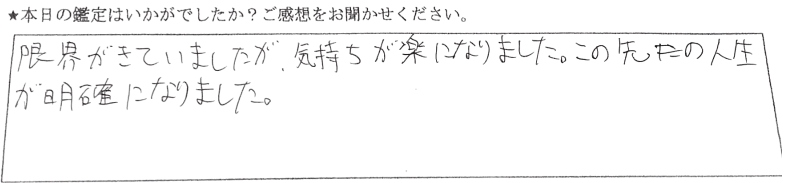 ★本日の鑑定はいかがでしたか?ご感想をお聞かせください。
限界がきていましたが、気持ちが楽になりました。この先の人生
が明確になりました。